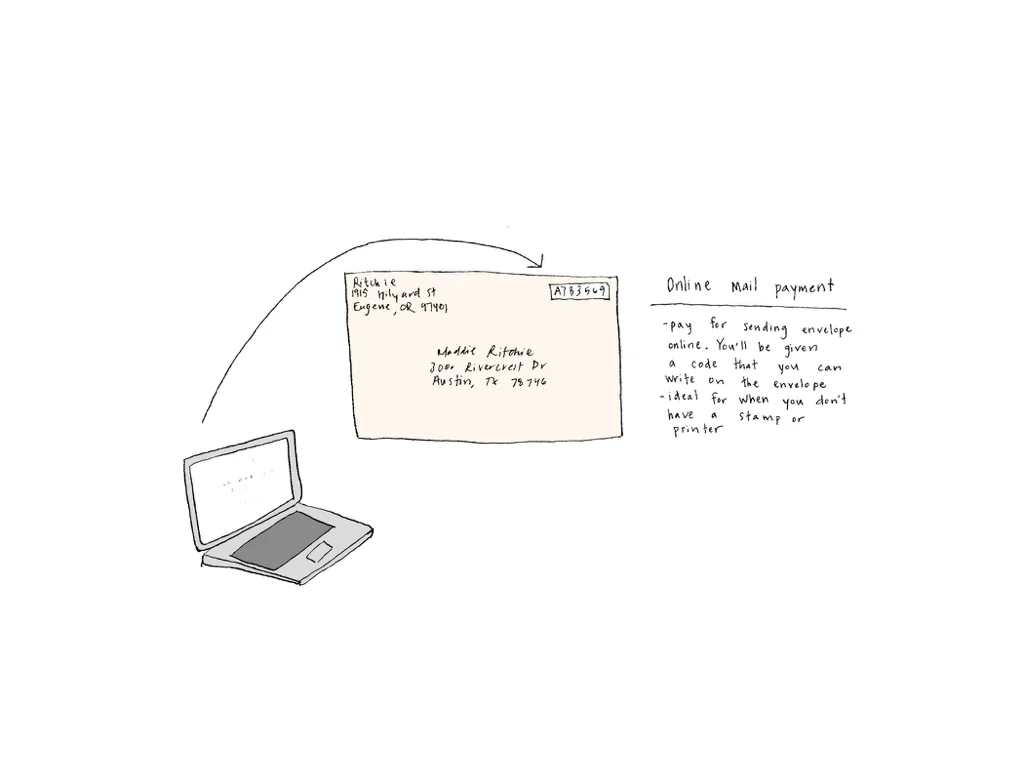 Ritchie
1915 Hilyard St
Eugene, OR 97401
A783569
Maddie Ritchie
3000 Rivercrest Dr
Austin, TX 78746
Online mail payment
- pay for sending envelope
online. You'll be given
a code that you can
write on the envelope
- ideal for when you don't
have a stamp or
printer